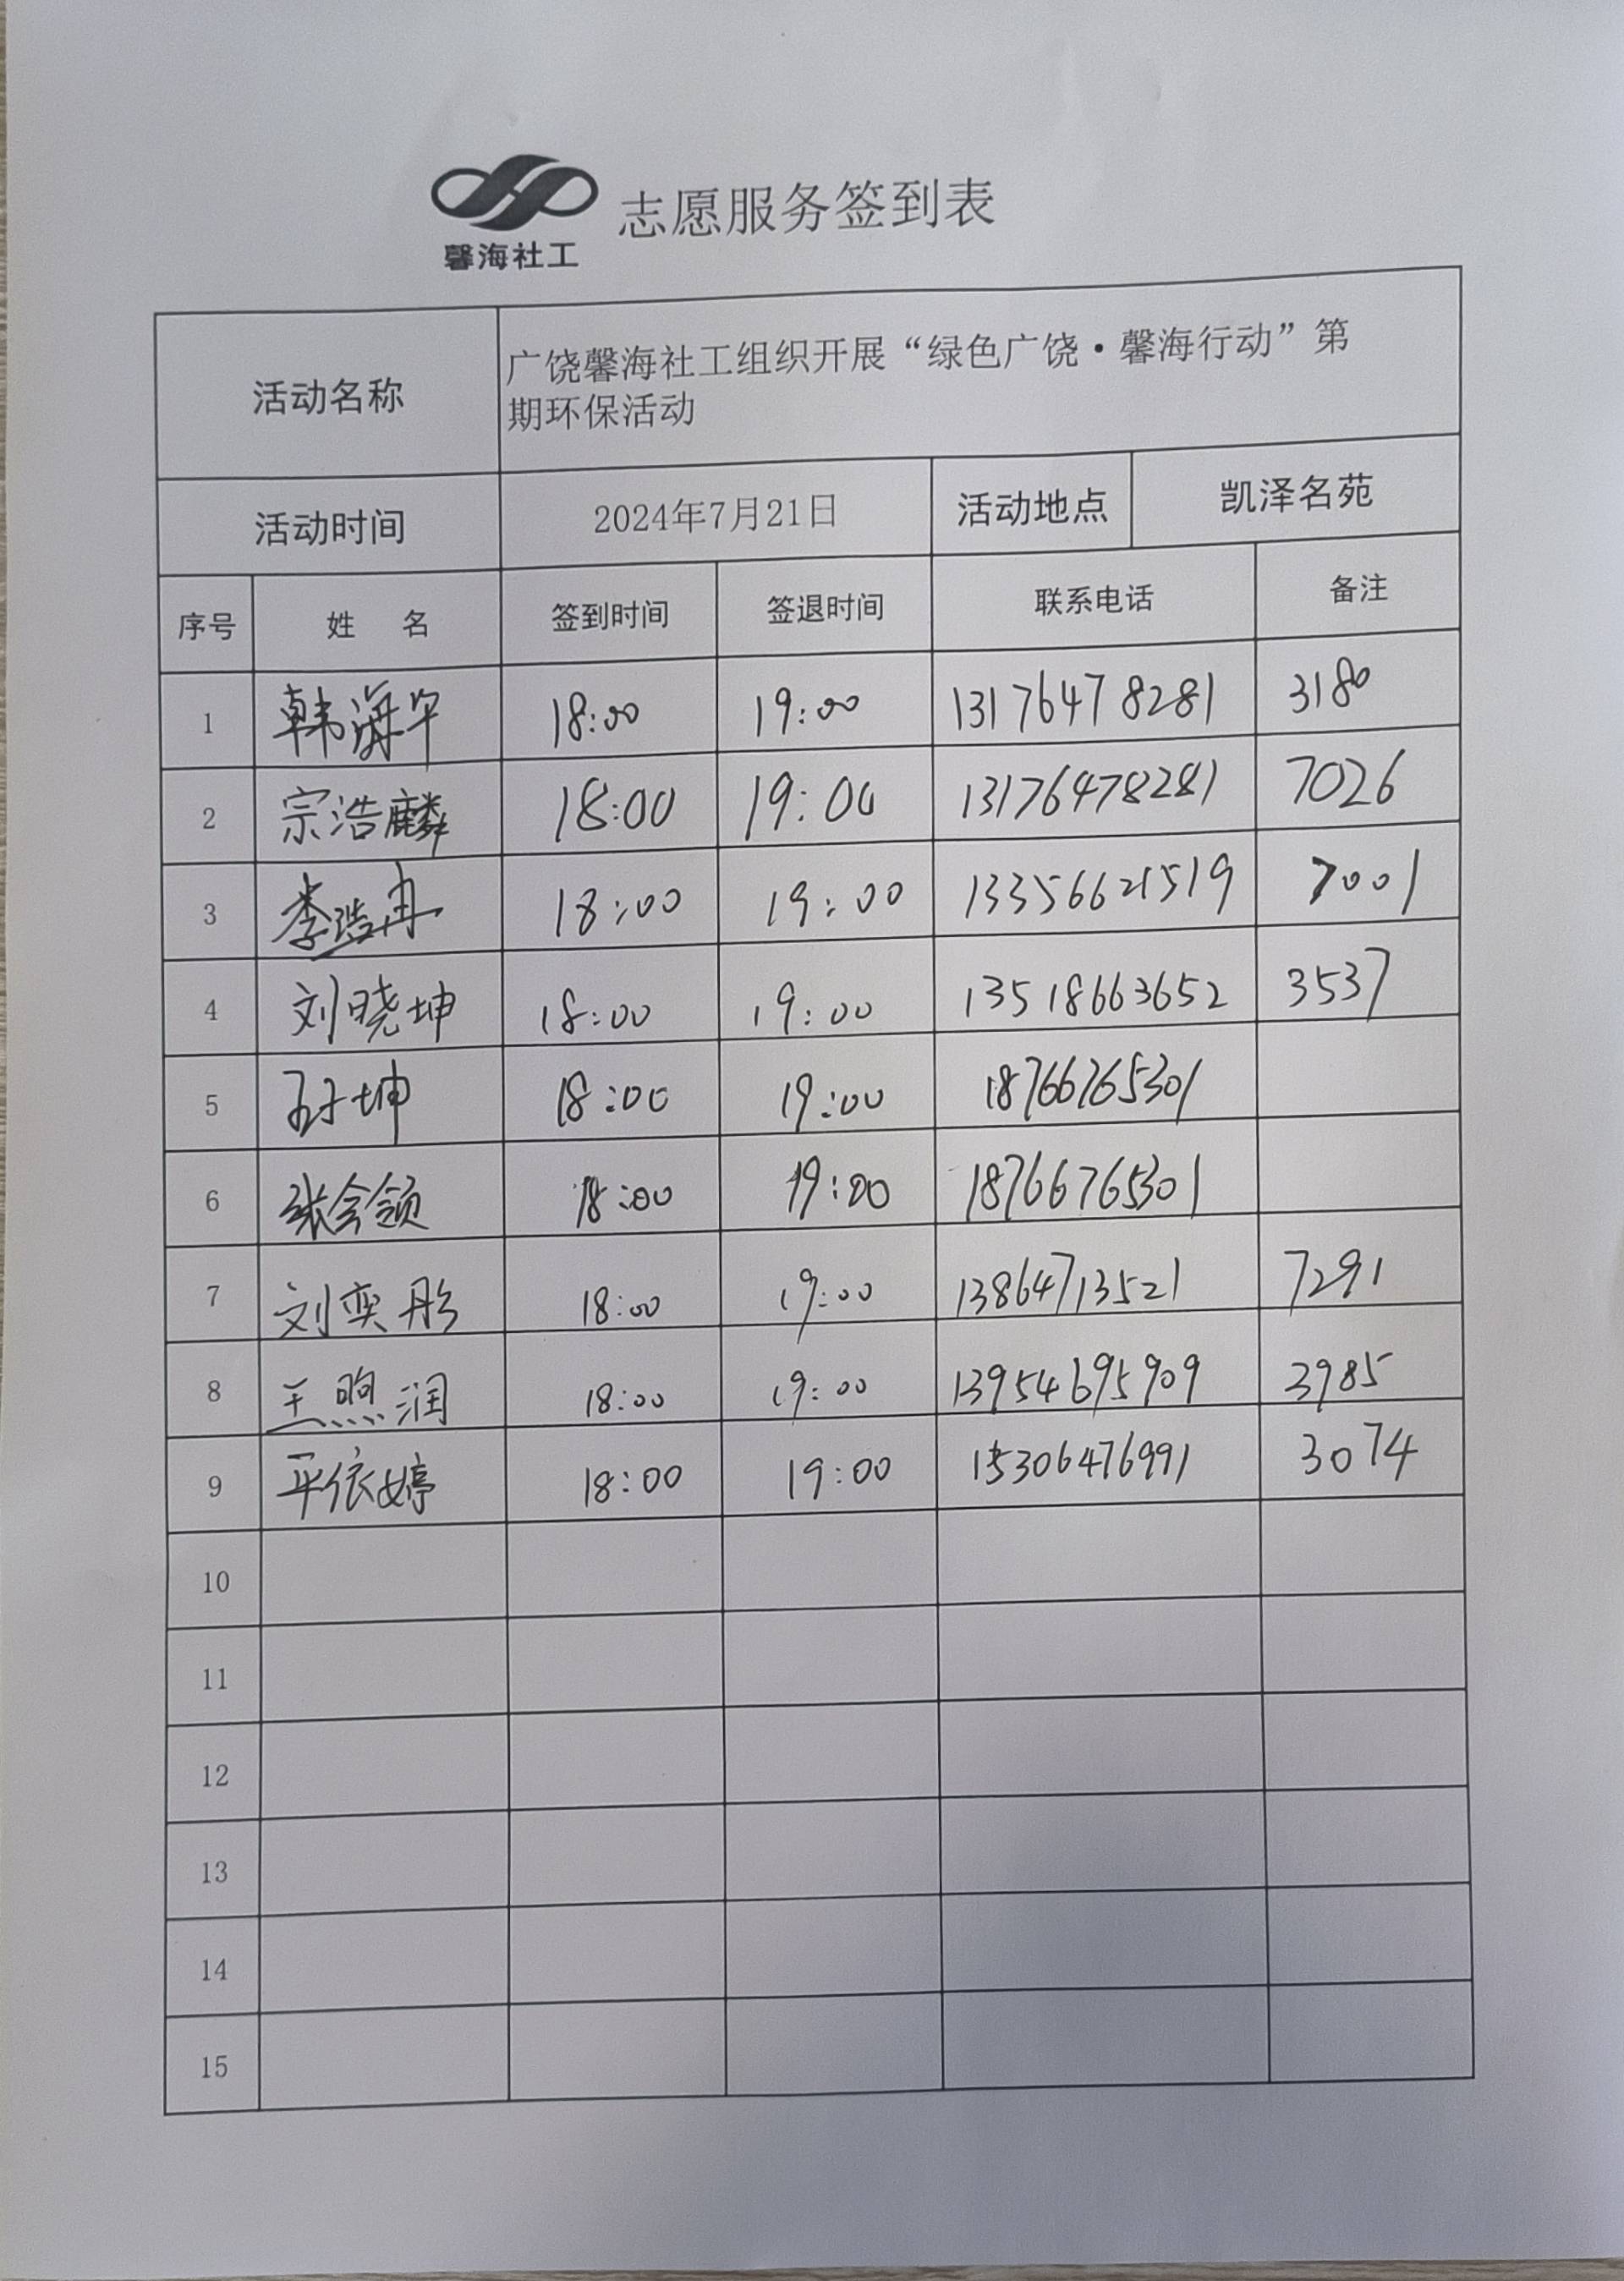 志愿服务签到表
馨海社工
活动名称
广饶馨海社工组织开展“绿色广饶·馨海行动”第
期环保活动
活动时间 2024年7月21日 活动地点 凯泽名苑
序号 姓 名 签到时间 签退时间 联系电话 备注
1 韩 18:00 19:00 13176478281 3180
2 宗浩麟 18:00 19:00 13176478281 7026
3 李浩冉 18:00 19:00 13356621519 7001
4 刘晓坤 18:00 19:00 13518663652 3537
5 孙坤 18:00 19:00 18766765301
6 张会领 18:00 19:00 18766765301
7 刘奕彤 18:00 19:00 13864713521 7291
8 王煦润 18:00 19:00 13954695909 3985
9 平依婷 18:00 19:00 15306476991 3074
10
11
12
13
14
15